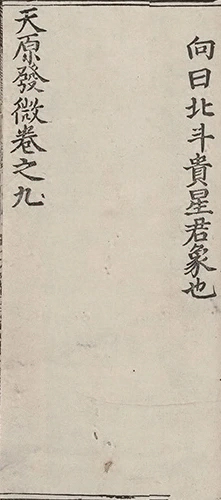 向曰北斗貴星君象也
天原發微卷之九